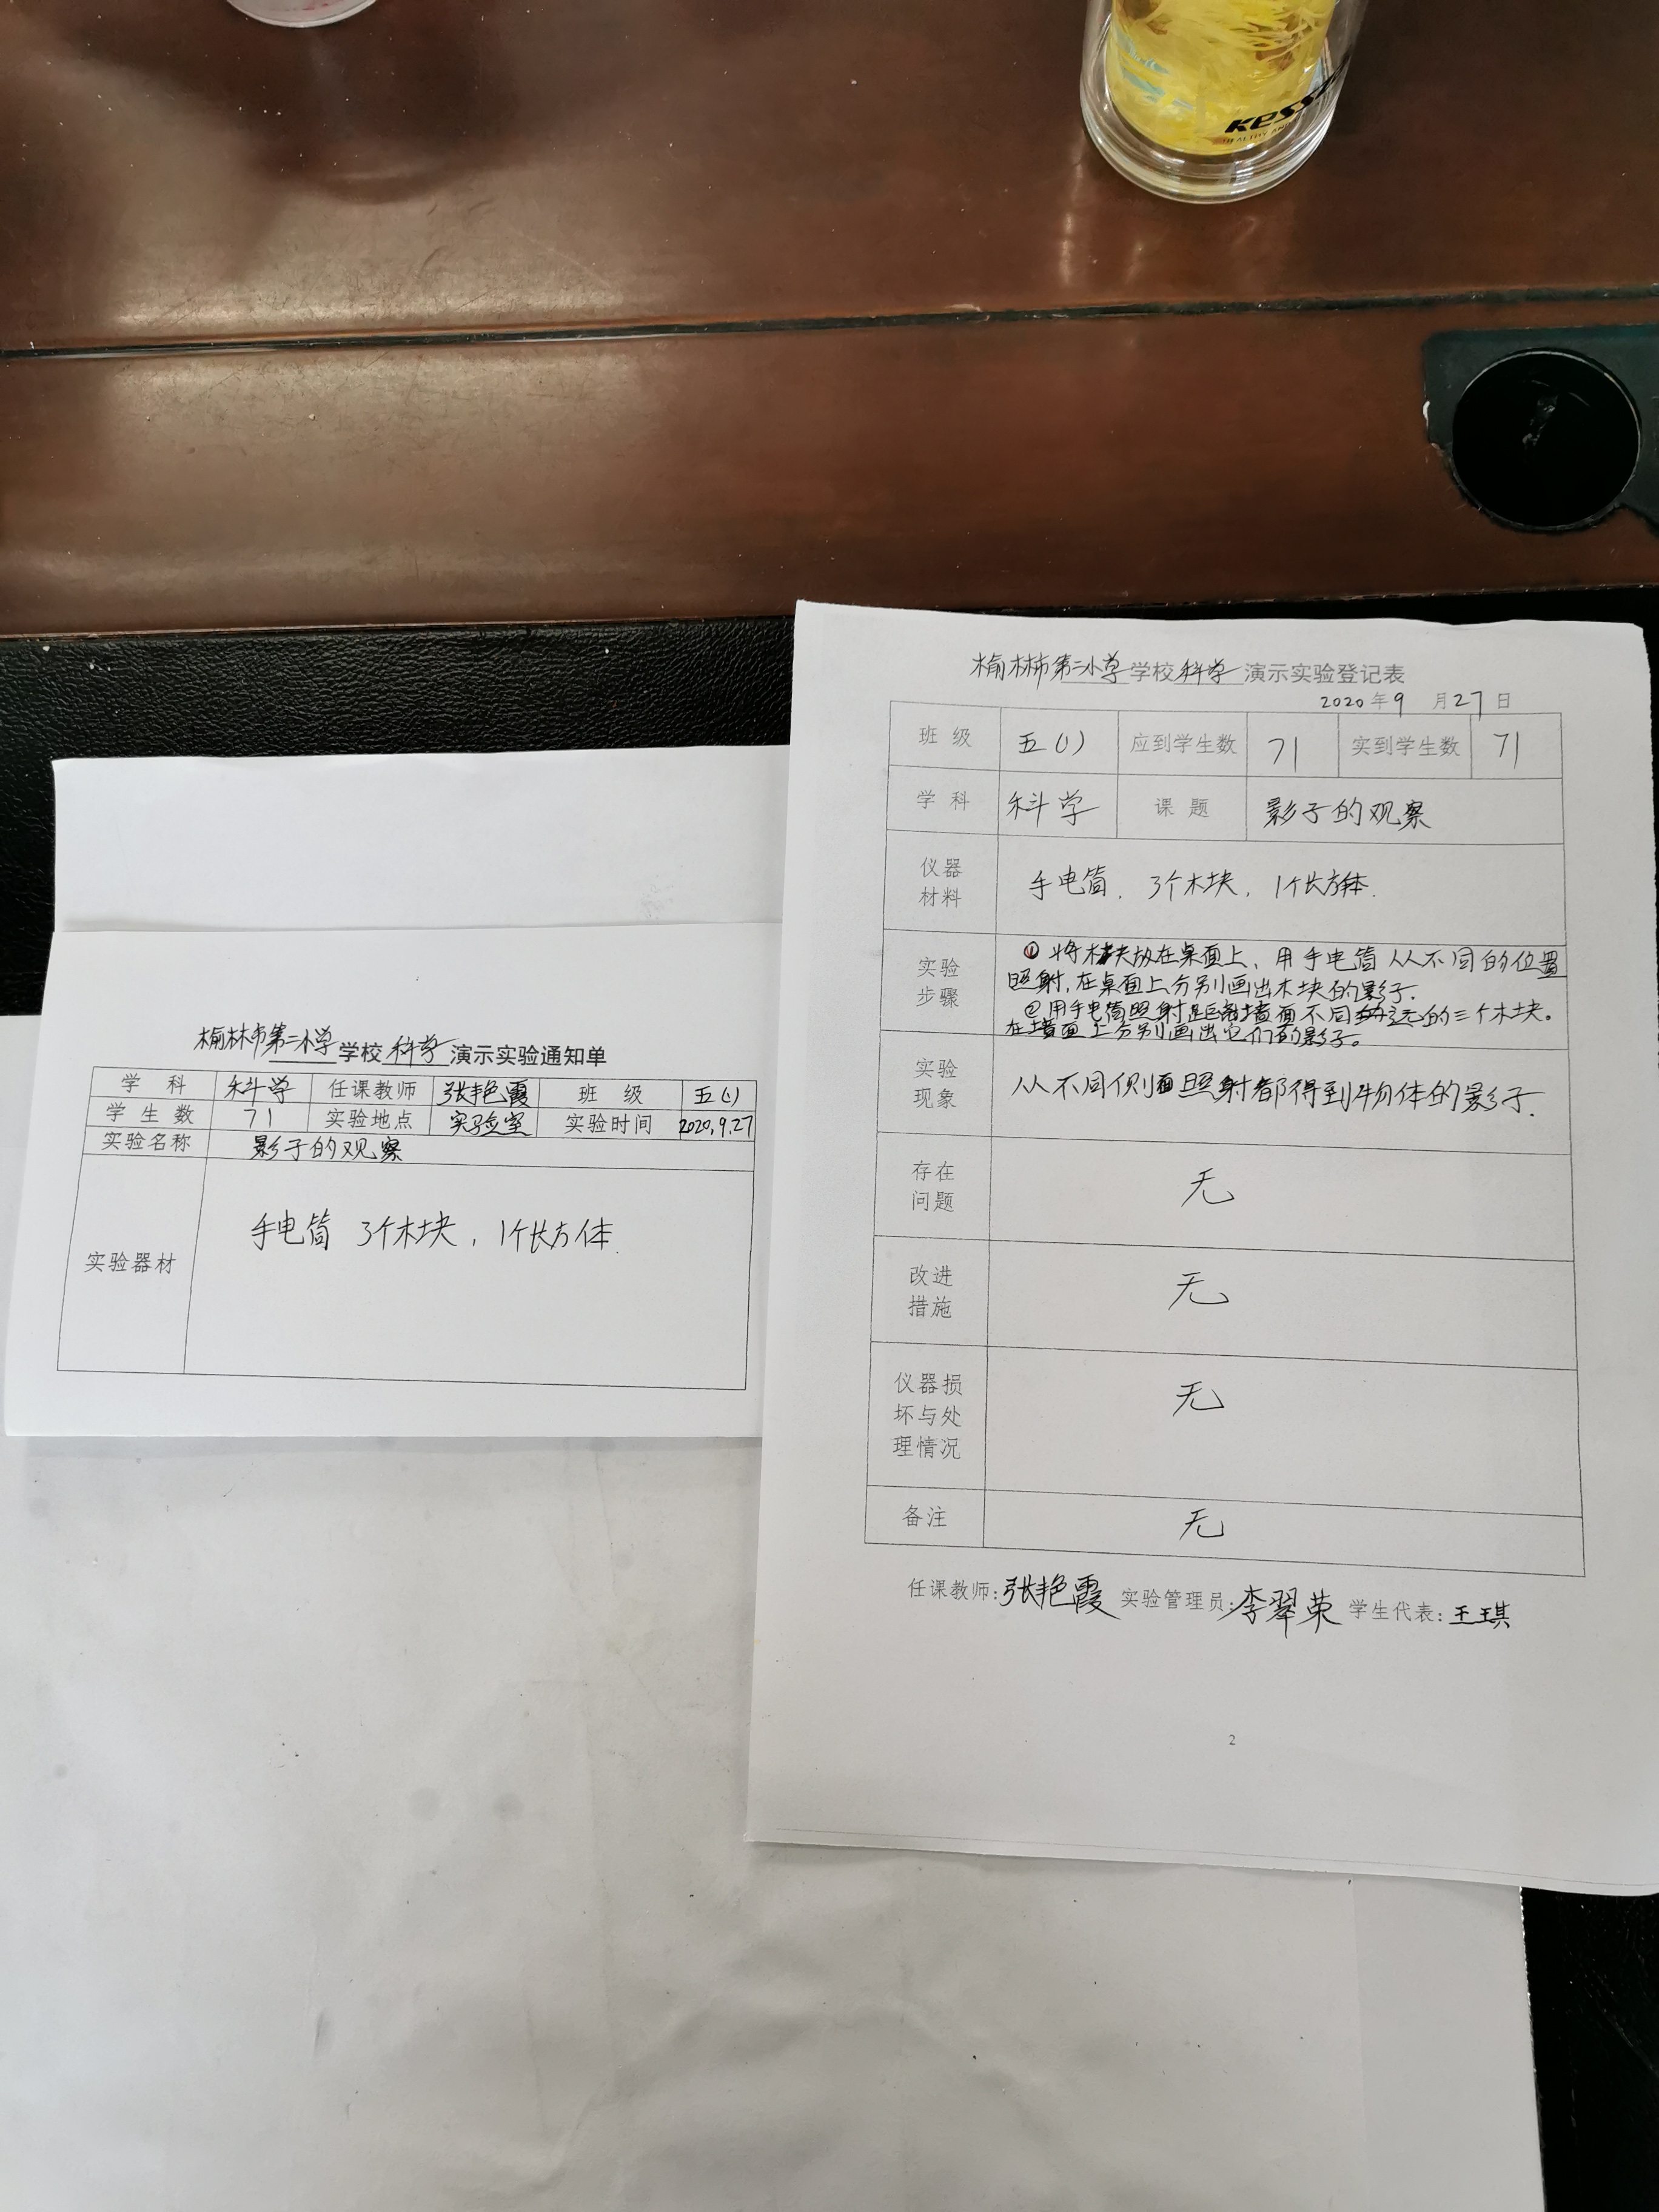 kess
HEALTHY AN
榆林市第二小学学校科学演示实验通知单
学 科 科学 任课教师 张艳霞 班 级 五(1)
学 生 数 71 实验地点 实验室 实验时间 2020.9.27
实验名称 影子的观察
实验器材 手电筒 3个木块,1个长方体.
榆林市第二小学学校科学演示实验登记表
2020年9月27日
班 级 五(1) 应到学生数 71 实到学生数 71
学 科 科学 课 题 影子的观察
仪器
材料
手电筒. 3个木块, 1个长方体.
实验
步骤
①将木块放在桌面上、用手电筒从不同的位置
照射,在桌面上分别画出木块的影子.
②用手电筒照射距离墙面不同远的三个木块。
在墙面上分别画出它们的影子。
实验
现象
从不同侧面照射都得到物体的影子.
存在
问题
无
改进
措施
无
仪器损
坏与处
理情况
无
备注 无
任课教师:张艳霞 实验管理员:李翠荣 学生代表:王琪
2